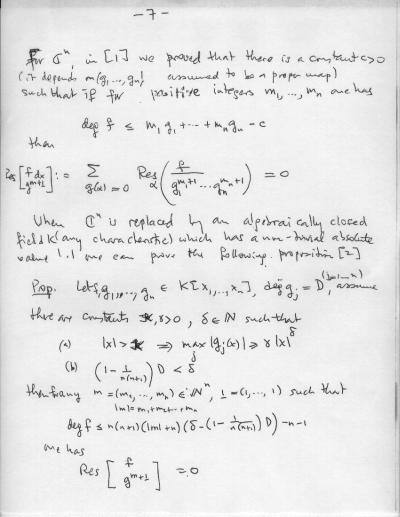 -7-
For ℂⁿ, in [1] we proved that there is a constant c>0
(it depends on (g₁,...,gₙ) assumed to be a proper map)
such that if for positive integers m₁,...,mₙ one has
deg f ≤ m₁g₁+...+mₙgₙ-c
then
Res [f dx / g^{m+1}] := Σ_{g(α)=0} Res_α (f / g₁^{m₁+1}...gₙ^{mₙ+1}) = 0
When ℂⁿ is replaced by an algebraically closed
field K (any characteristic) which has a non-trivial absolute
value |.| one can prove the following proposition [2]
Prop. Let f,g₁,...,gₙ ∈ K[x₁,...,xₙ], deg gⱼ = D, (j=1...n) assume
there are constants γ>0, δ∈ℕ such that
(a) |x|> ⇒ max_j |gⱼ(x)| ≥ γ|x|^δ
(b) (1 - 1/n(n+1)) D < δ
then for any m=(m₁,...,mₙ)∈ℕⁿ, 1=(1,...,1) such that
|m|=m₁+m₂+...+mₙ
deg f ≤ n(n+1)(|m|+n)(δ-(1-1/n(n+1))D)-n-1
one has
Res [f / g^{m+1}] = 0